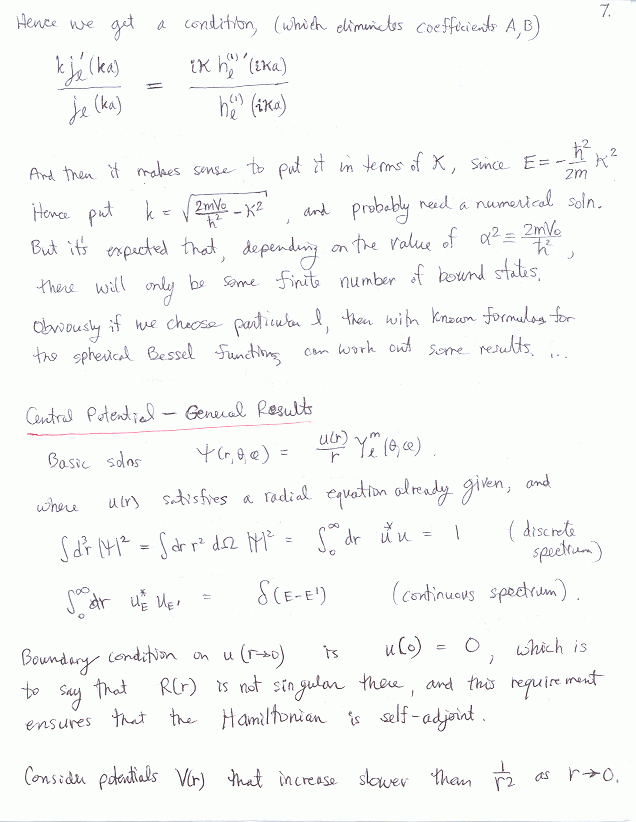 7.
Hence we get a condition, (which eliminates coefficients A,B)
k jₗ'(ka) / jₗ(ka) = iκ hₗ⁽¹⁾'(iκa) / hₗ⁽¹⁾(iκa)
And then it makes sense to put it in terms of κ, since E = -ħ²/2m κ²
Hence put k = √(2mV₀/ħ² - κ²) , and probably need a numerical soln.
But it's expected that, depending on the value of α² ≡ 2mV₀/ħ² ,
there will only be some finite number of bound states.
Obviously if we choose particular l, then with known formulas for
the spherical Bessel functions can work out some results. ...
Central Potential — General Results
Basic solns ψ(r,θ,φ) = u(r)/r Yₗᵐ(θ,φ).
where u(r) satisfies a radial equation already given, and
∫d³r |ψ|² = ∫dr r² dΩ |ψ|² = ∫₀^∞ dr u* u = 1 (discrete spectrum)
∫₀^∞ dr u_E* u_E' = δ(E-E') (continuous spectrum).
Boundary condition on u(r→0) is u(0) = 0, which is
to say that R(r) is not singular there, and this requirement
ensures that the Hamiltonian is self-adjoint.
Consider potentials V(r) that increase slower than 1/r² as r→0.